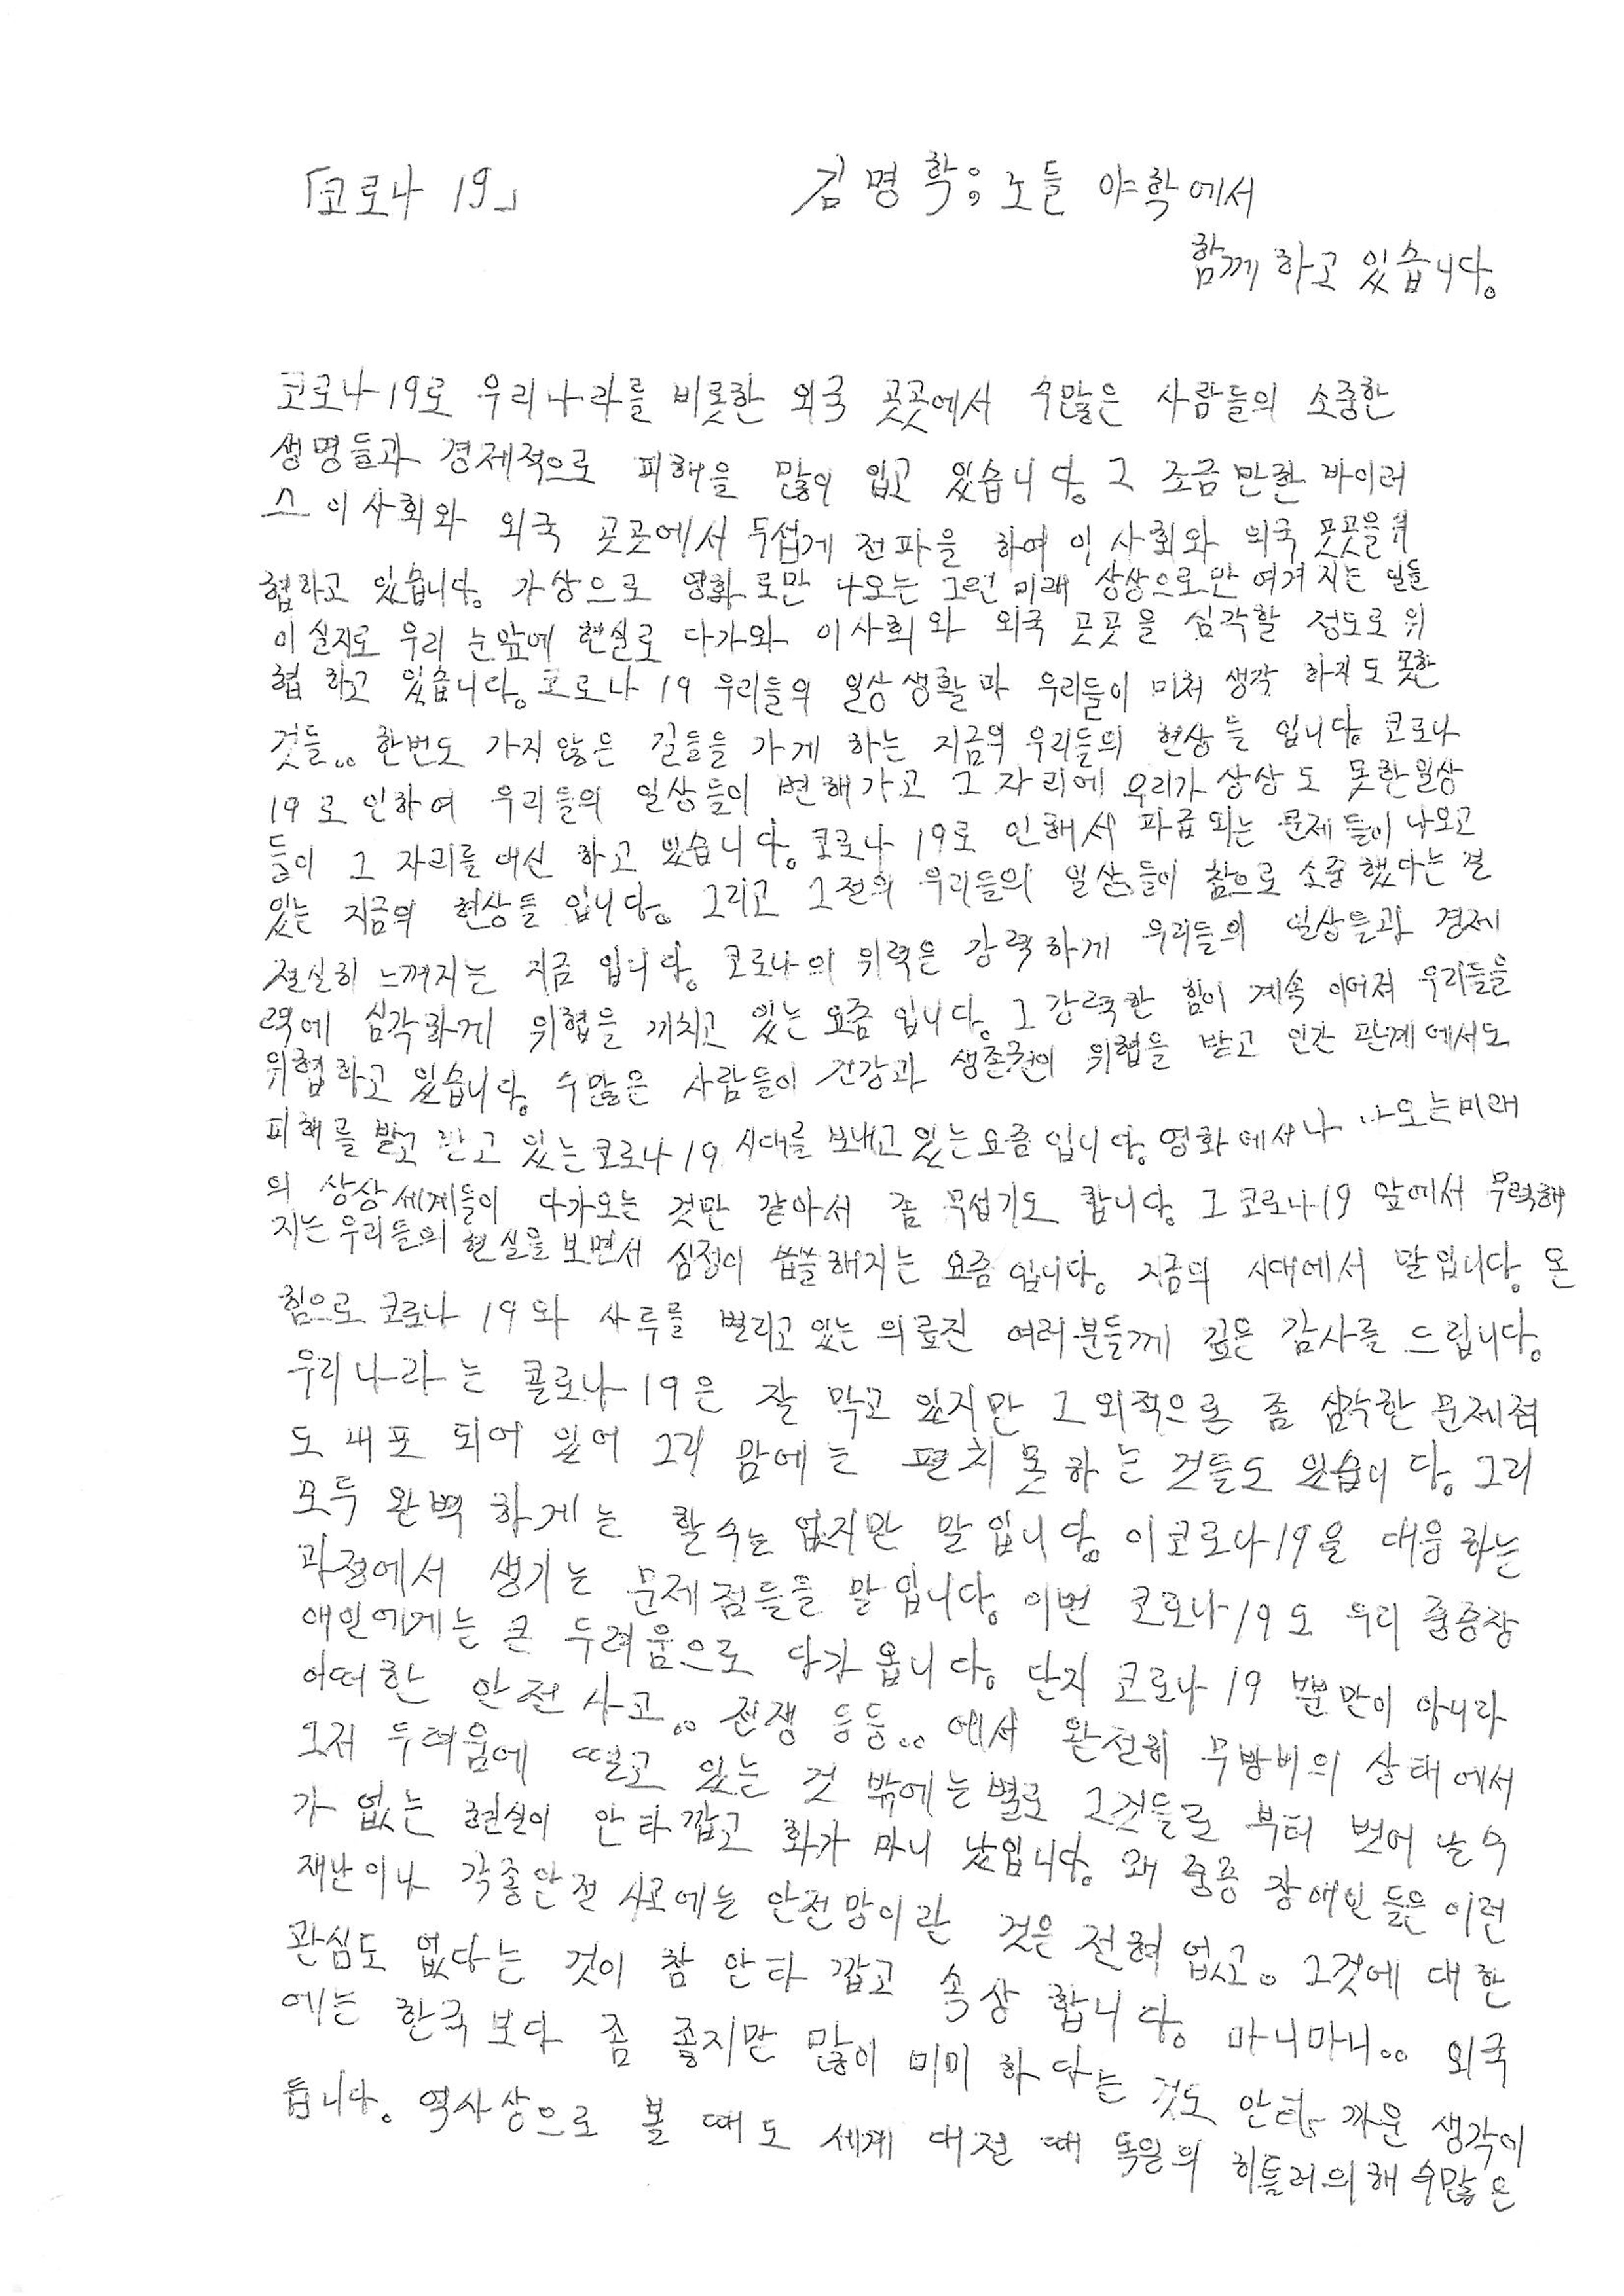 「코로나 19」 김명학; 노들 야학에서
함께 하고 있습니다.
코로나19로 우리나라를 비롯한 외국 곳곳에서 수많은 사람들의 소중한
생명들과 경제적으로 피해을 많이 입고 있습니다. 그 조금만한 바이러
스 이 사회와 외국 곳곳에서 무섭게 전파을 하여 이 사회와 외국 곳곳을 위
협하고 있습니다. 가상으로 영화로만 나오는 그런 미래 상상으로만 여겨지는 일들
이 실지로 우리 눈앞에 현실로 다가와 이 사회와 외국 곳곳을 심각할 정도로 위
협 하고 있습니다. 코로나 19 우리들의 일상 생활과 우리들이 미처 생각 하지도 못한
것들.. 한번도 가지 않은 길들을 가게 하는 지금의 우리들의 현상들 입니다. 코로나
19로 인하여 우리들의 일상들이 변해가고 그 자리에 우리가 상상도 못한 일상
들이 그 자리를 대신 하고 있습니다. 코로나 19로 인해서 파급되는 문제들이 나오고
있는 지금의 현상들 입니다. 그리고 그전의 우리들의 일상들이 참으로 소중했다는 걸
절실히 느껴지는 지금 입니다. 코로나의 위력은 강력하게 우리들의 일상들과 경제
력에 심각하게 위협을 끼치고 있는 요즘 입니다. 그 강력한 힘이 계속 이어져 우리들을
위협하고 있습니다. 수많은 사람들이 건강과 생존권의 위협을 받고 인간 관계에서도
피해를 받고 있는 코로나 19 시대를 보내고 있는 요즘 입니다. 영화에서나 나오는 미래
의 상상 세계들이 다가오는 것만 같아서 좀 무섭기도 합니다. 그 코로나19 앞에서 무력해
지는 우리들의 현실을 보면서 심정이 씁쓸해지는 요즘 입니다. 지금의 시대에서 말입니다. 온
힘으로 코로나 19와 사투를 벌리고 있는 의료진 여러분들께 깊은 감사를 드립니다.
우리나라는 콜로나19은 잘 막고 있지만 그 외적으론 좀 심각한 문제점
도 내포 되어 있어 그리 맘에는 편치 못하는 것들도 있습니다. 그리
모두 완벽 하게는 할 수는 없지만 말입니다. 이 코로나19을 대응하는
과정에서 생기는 문제점들을 말입니다. 이번 코로나19도 우리 중증장
애인에게는 큰 두려움으로 다가 옵니다. 단지 코로나 19 뿐만이 아니라
어떠한 안전사고.. 전쟁 등등.. 에서 완전히 무방비의 상태에서
그저 두려움에 떨고 있는 것 밖에는 별로 그것들로 부터 벗어 날수
가 없는 현실이 안타깝고 화가 마니 났입니다. 왜 중증 장애인들은 이런
재난이나 각종안전 사고에는 안전망이란 것은 전혀 없고. 그것에 대한
관심도 없다는 것이 참 안타깝고 속상 합니다. 마니마니.. 외국
에는 한국보다 좀 좋지만 많이 미미 하다는 것도 안타까운 생각이
듭니다. 역사상으로 볼 때도 세계 대전 때 독일의 히틀러의해 수많은